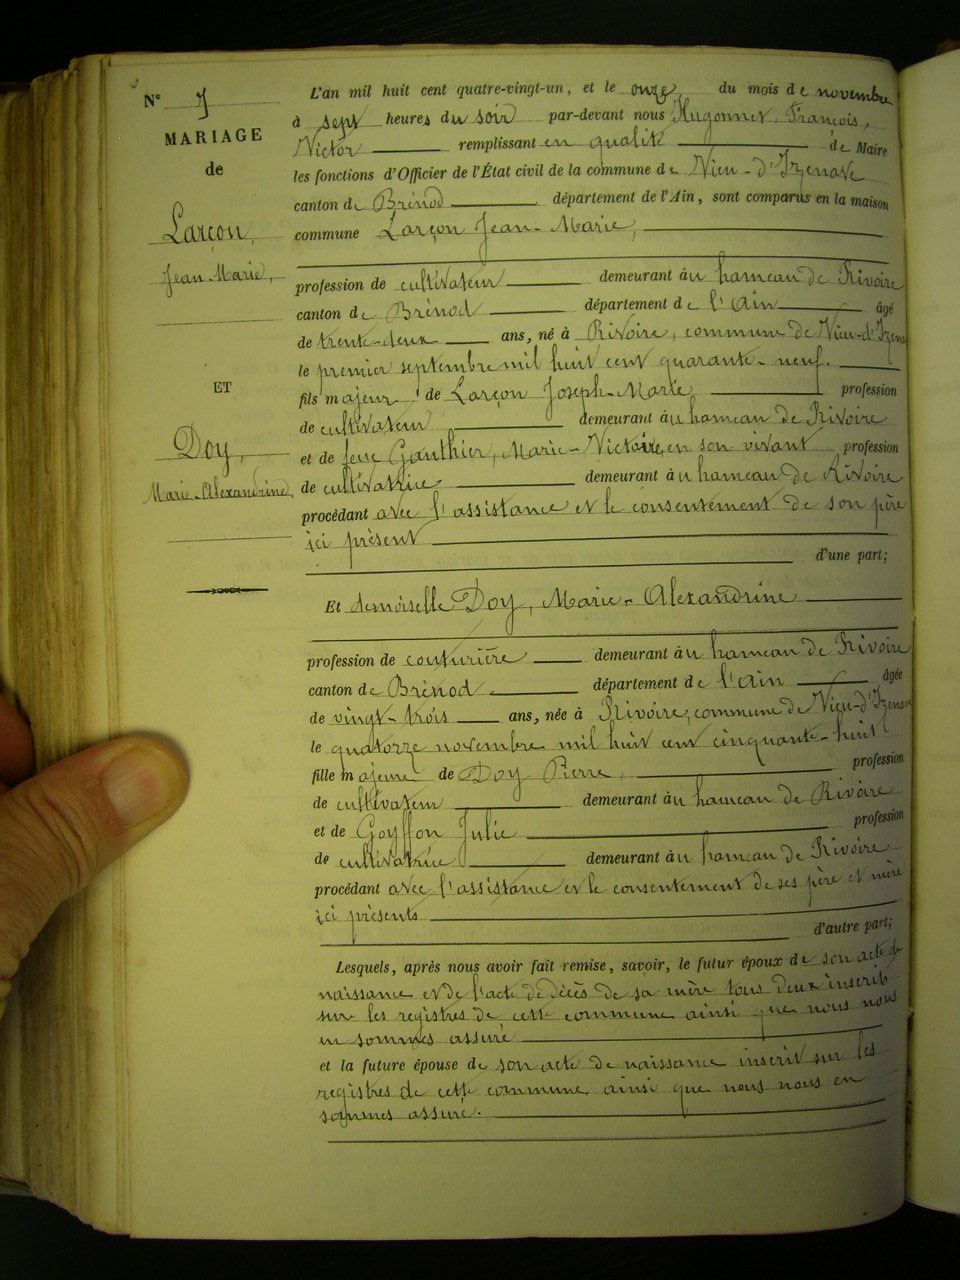 Nº 7
MARIAGE
de
Larçon,
Jean-Marie,
ET
Doy,
Marie-Alexandrine,
L'an mil huit cent quatre-vingt-un, et le onze du mois de novembre
à sept heures du soir par-devant nous Hugonnet, François,
Victor remplissant en qualité de Maire
les fonctions d'Officier de l'État civil de la commune de Vieu-d'Izenave
canton de Brénod département de l'Ain, sont comparus en la maison
commune Larçon Jean-Marie,
profession de cultivateur demeurant au hameau de Rivoire
canton de Brénod département de l'Ain âgé
de trente-deux ans, né à Rivoire, commune de Vieu-d'Izena
le premier septembre mil huit cent quarante-neuf.
fils majeur de Larçon Joseph-Marie profession
de cultivateur demeurant au hameau de Rivoire
et de feue Gauthier, Marie-Victoire, en son vivant profession
de cultivatrice demeurant au hameau de Rivoire
procédant avec l'assistance et le consentement de son père
ici présent
d'une part;
Et demoiselle Doy, Marie-Alexandrine
profession de couturière demeurant au hameau de Rivoire
canton de Brénod département de l'Ain âgée
de vingt-trois ans, née à Rivoire, commune de Vieu-d'Izena
le quatorze novembre mil huit cent cinquante-huit
fille majeure de Doy Pierre, profession
de cultivateur demeurant au hameau de Rivoire
et de Goyffon Julie profession
de cultivatrice demeurant au hameau de Rivoire
procédant avec l'assistance et le consentement de ses père et mère
ici présents
d'autre part;
Lesquels, après nous avoir fait remise, savoir, le futur époux de son acte de
naissance et de l'acte de décès de sa mère tous deux inscrits
sur les registres de cette commune ainsi que nous nous
en sommes assuré
et la future épouse de son acte de naissance inscrit sur les
registres de cette commune, ainsi que nous nous en
sommes assuré.